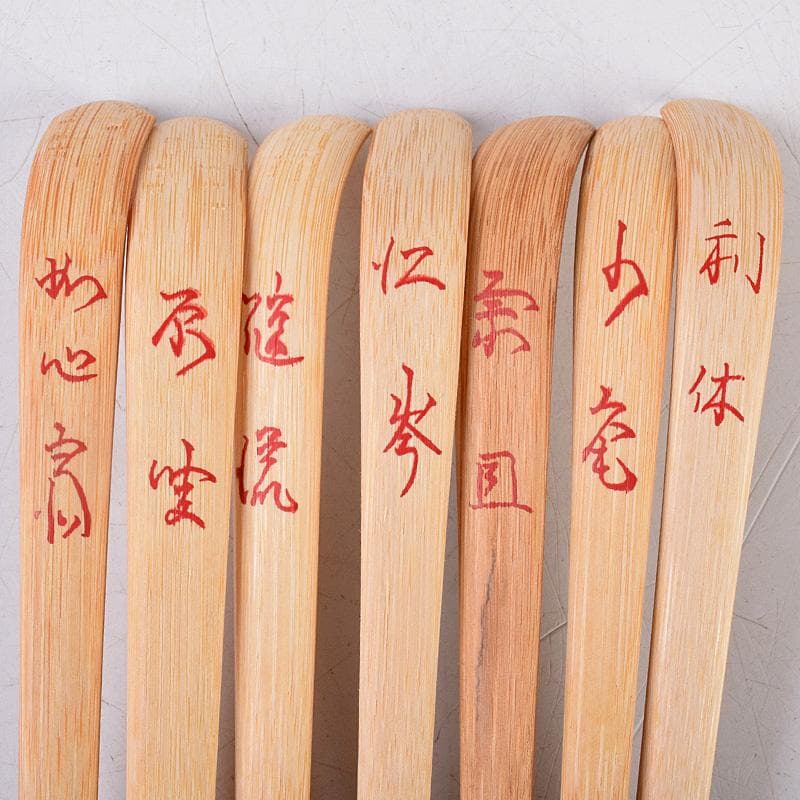 利休
少庵
宗旦
江岑
随流
原叟
如心斎